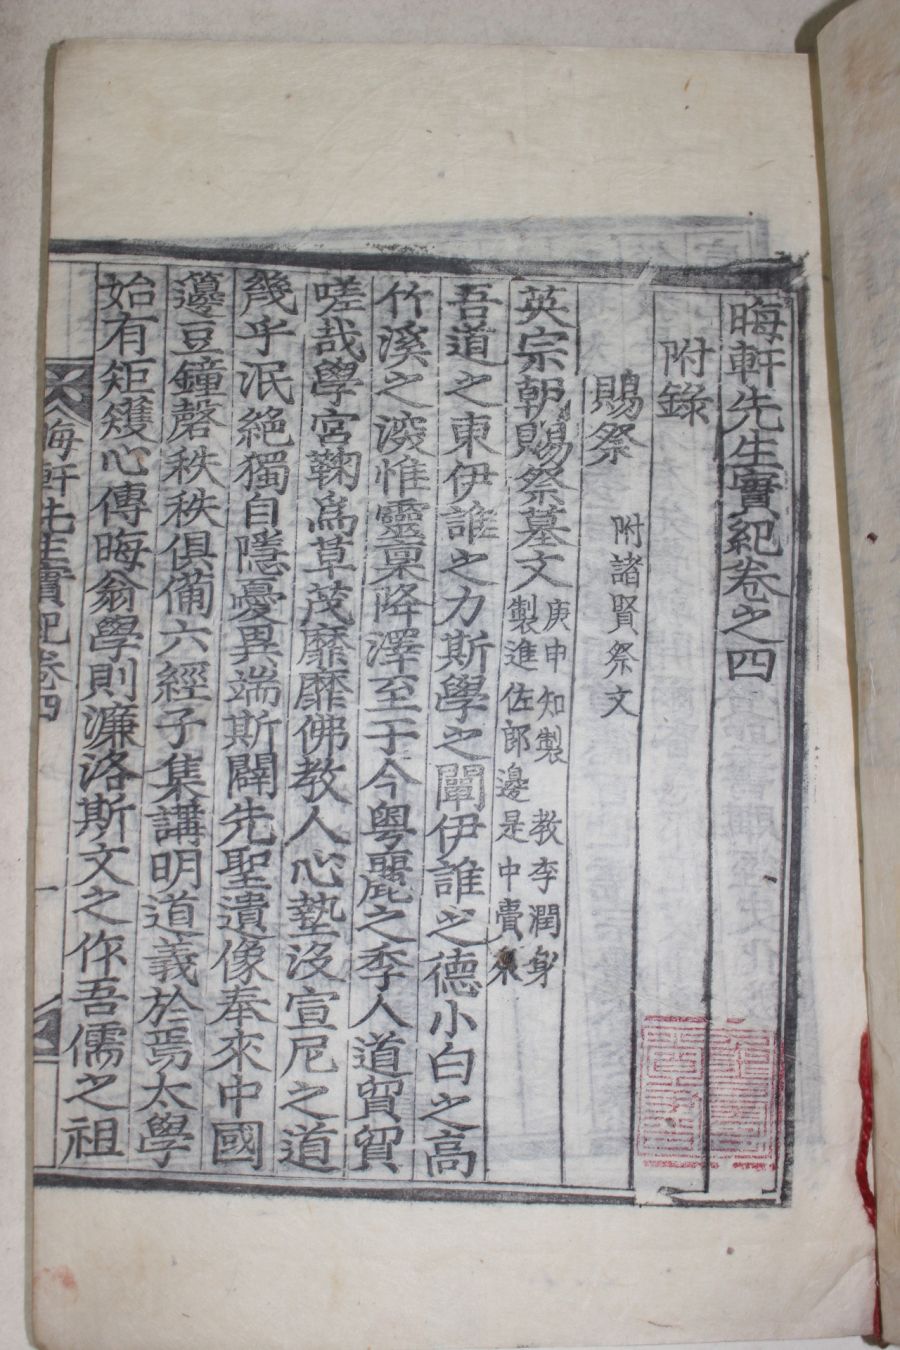 晦軒先生實紀卷之四
附錄
賜祭 附諸賢祭文
英宗朝賜祭墓文 庚申知製 教李潤身
製進佐郎邊是中賫來
吾道之東伊誰之力斯學之闡伊誰之德小白之高
竹溪之深惟靈稟降澤至于今粤麗之季人道貿貿
嗟哉學宮鞠爲草茂靡靡佛教人心墊沒宣尼之道
幾乎泯絕獨自隱憂異端斯闢先聖遺像奉來中國
籩豆鐘磬秩秩俱備六經子集講明道義於焉太學
始有矩矱心傳晦翁學則濂洛斯文之作吾儒之祖
晦軒先生實紀卷四
一